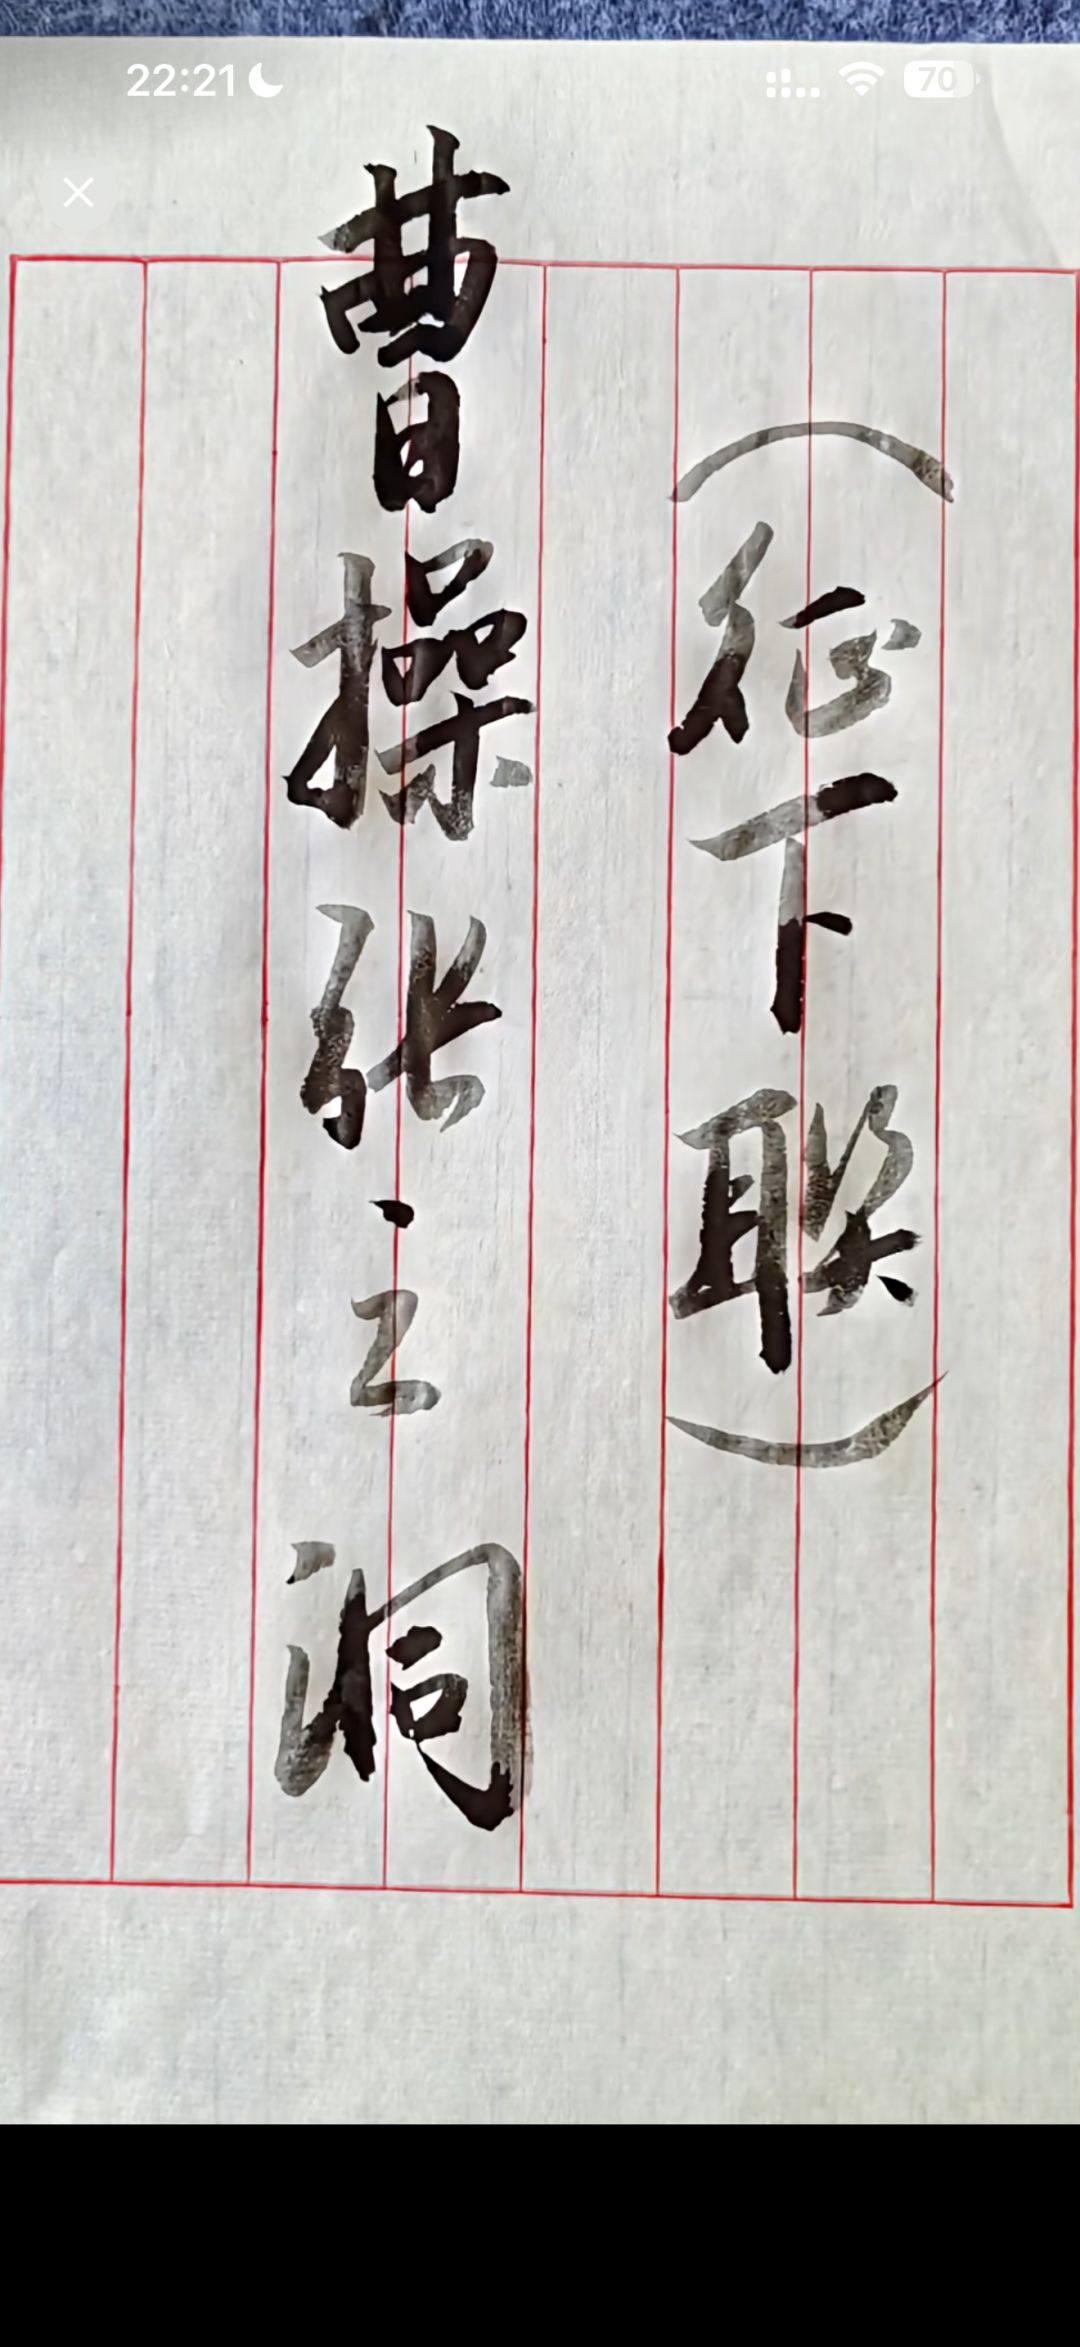 22:21
70
（征下联）
曹操张之洞